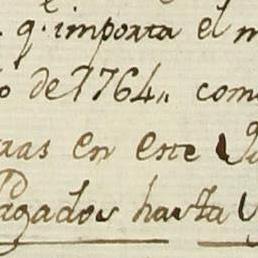 q.e importa el
de 1764,, com
en este
pagados hasta